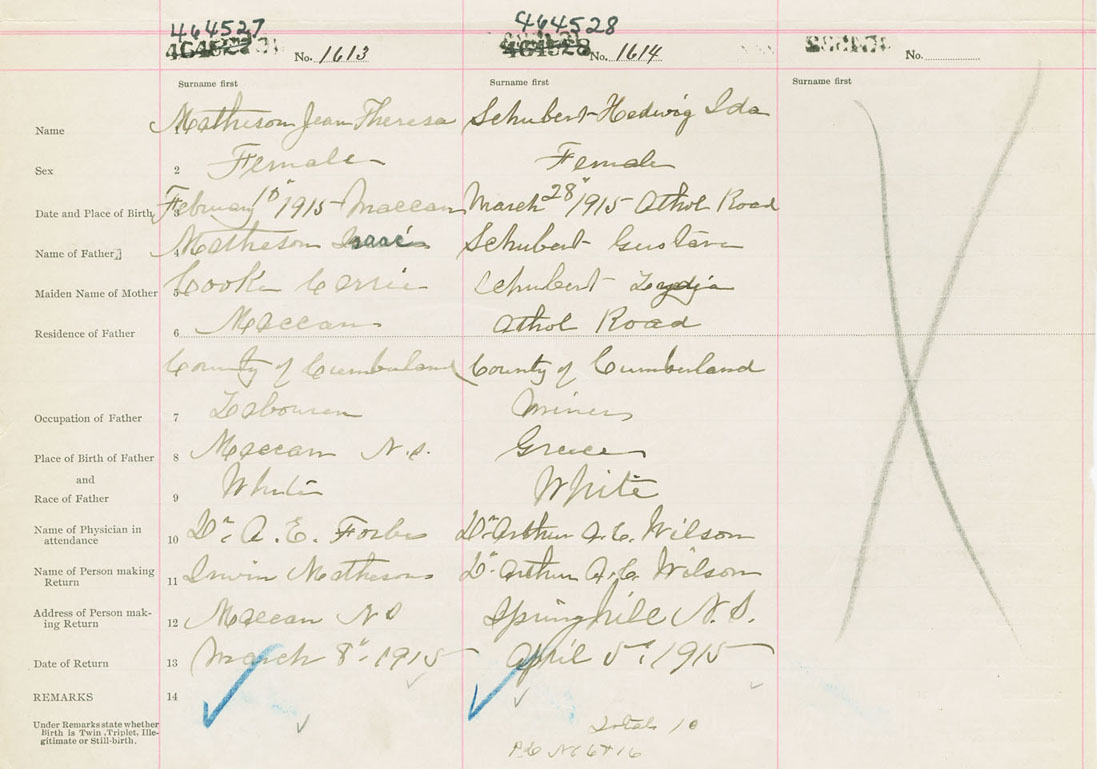 464527 464528
464527 No. 1613 464528 No. 1614 No.
Surname first Surname first Surname first
Name 1 Matheson Jean Theresa Schubert Hedwig Ida
Sex 2 Female Female
Date and Place of Birth 3 February 10" 1915 Maccan March 28" 1915 Athol Road
Name of Father 4 Matheson Isaac Schubert Gustave
Maiden Name of Mother 5 Cook Carrie Schubert Lydia
Residence of Father 6 Maccan Athol Road
County of Cumberland County of Cumberland
Occupation of Father 7 Labourer Miner
Place of Birth of Father 8 Maccan N.S. Greece
and
Race of Father 9 White White
Name of Physician in
attendance 10 Dr. A. E. Forbes Dr. Arthur A. E. Wilson
Name of Person making
Return 11 Irwin Matheson Dr. Arthur A. E. Wilson
Address of Person mak-
ing Return 12 Maccan N S Springhill N.S.
Date of Return 13 March 8" 1915 April 5", 1915
REMARKS 14
Under Remarks state whether
Birth is Twin, Triplet, Ille-
gitimate or Still-birth.
Total 10